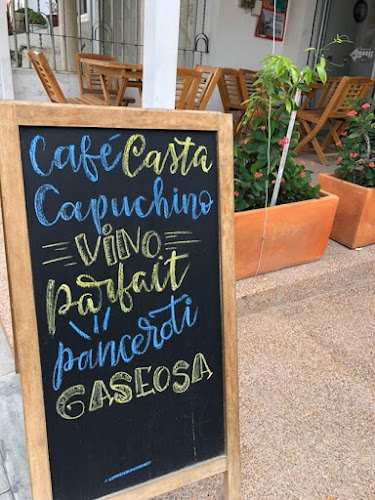 Café Casta
Capuchino
VINO
Parfait
panceroti
GASEOSA